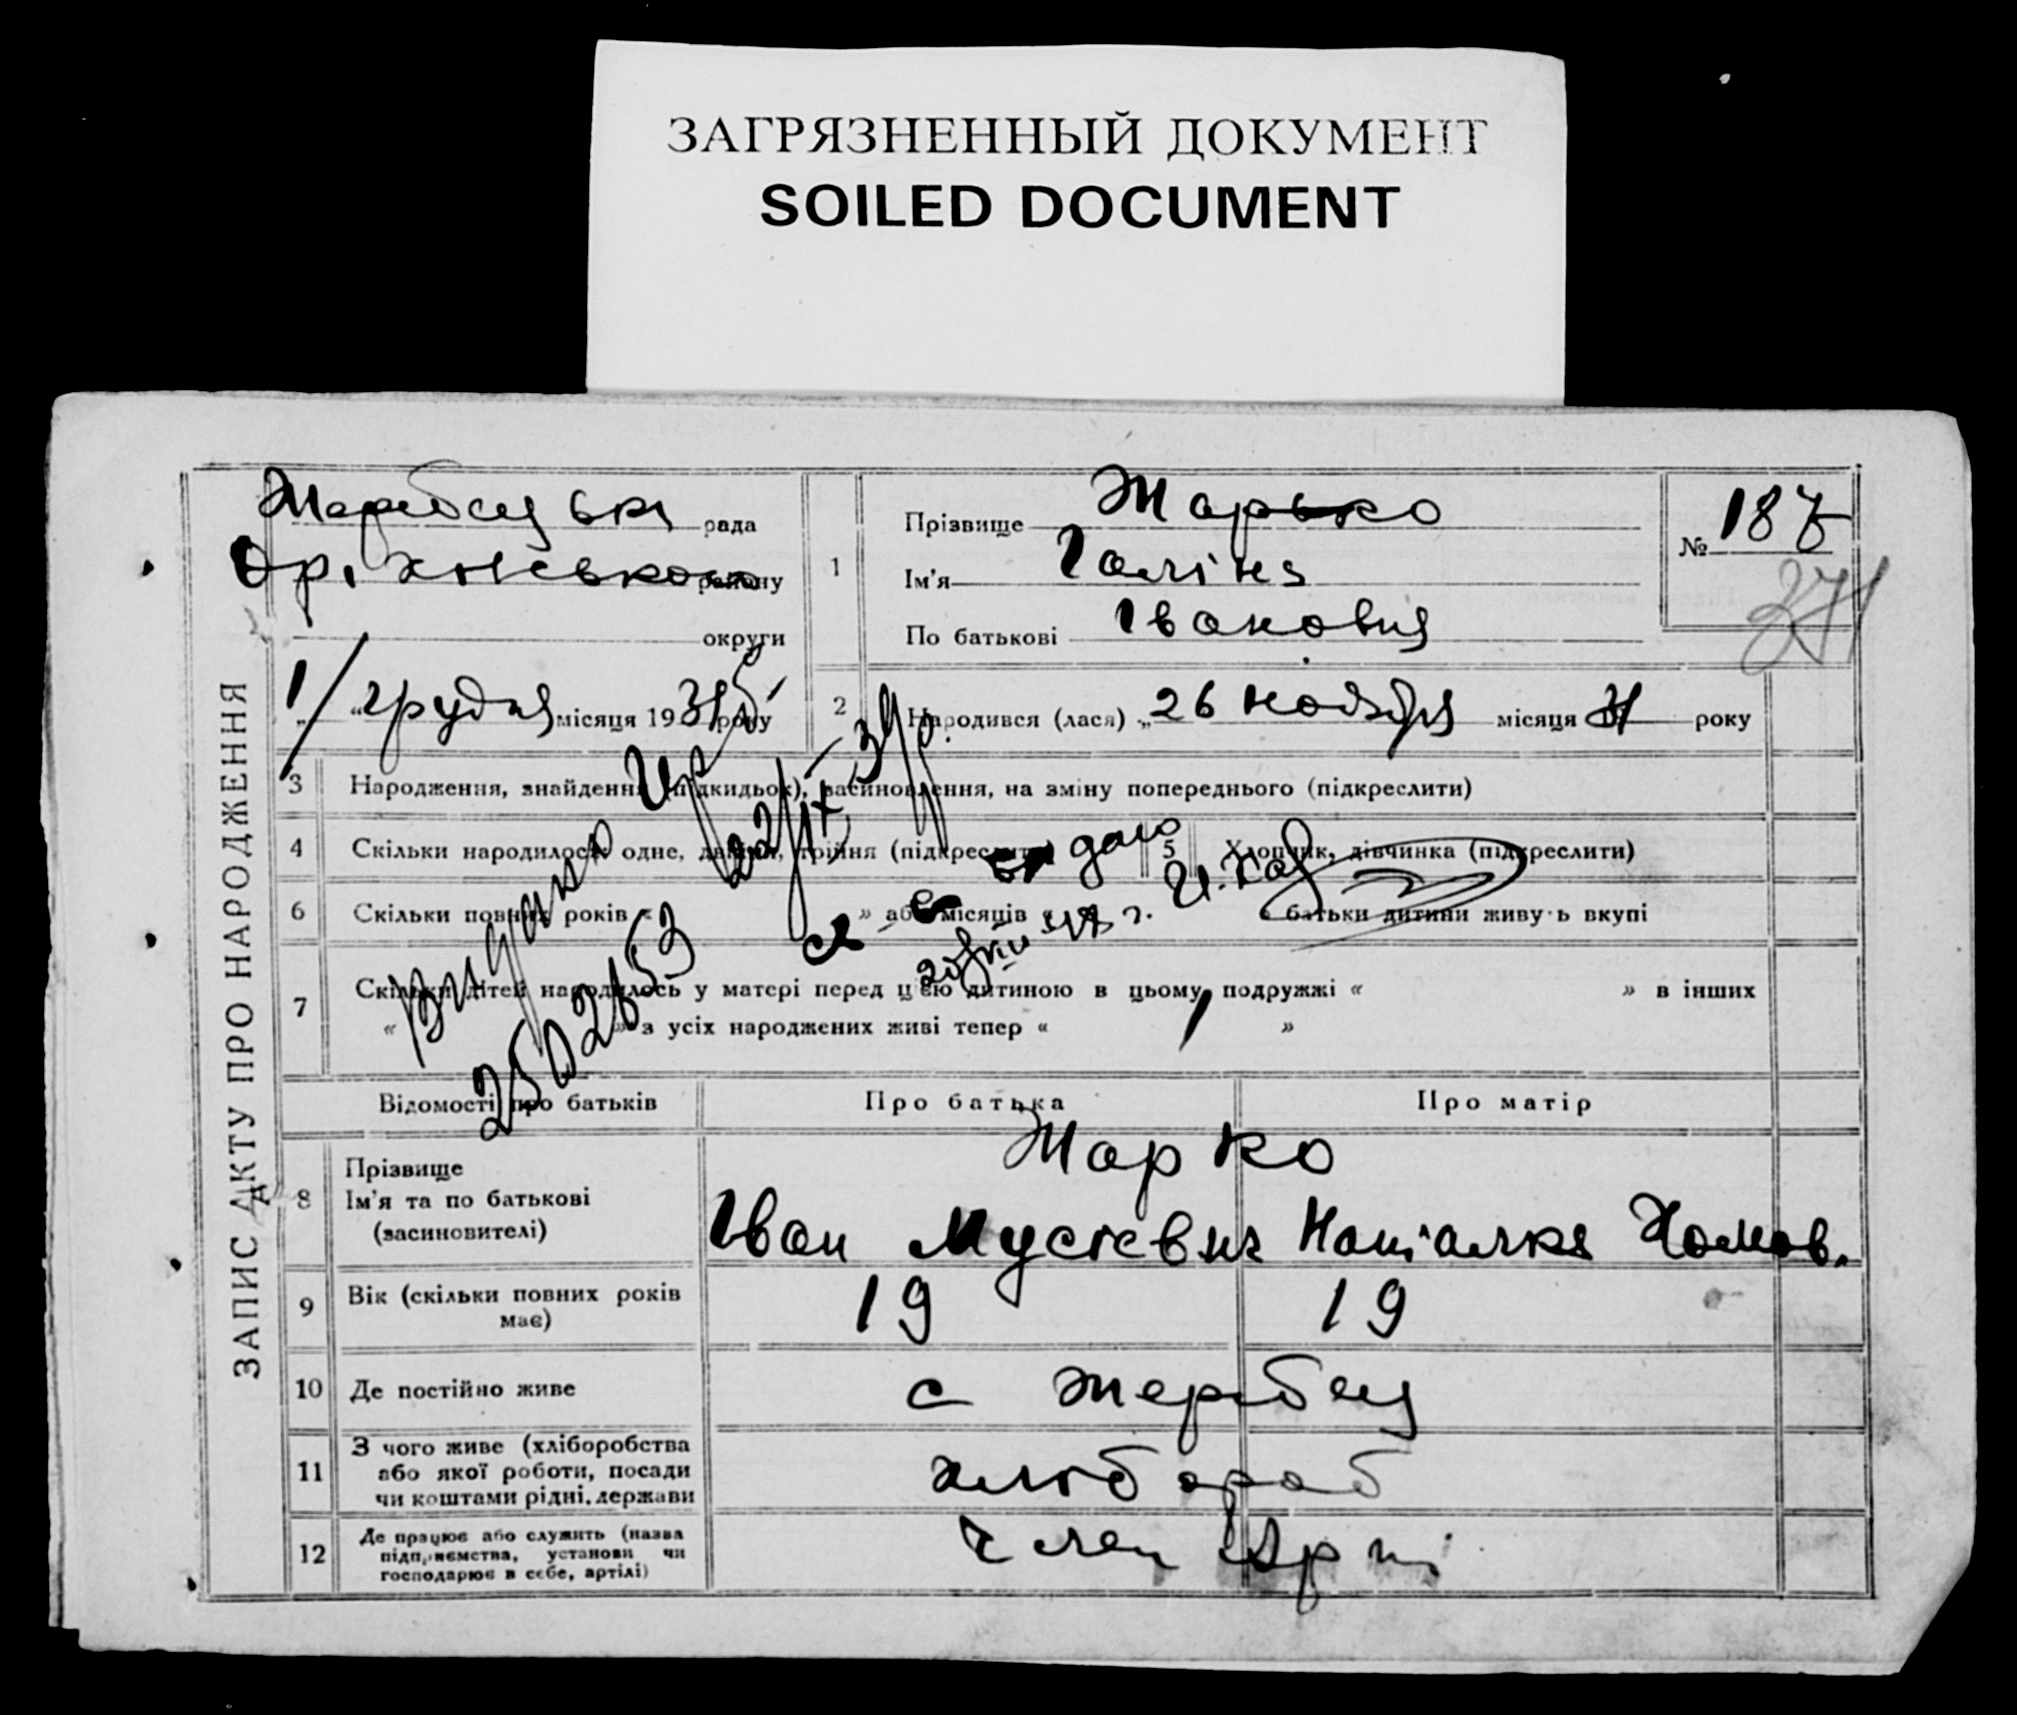 ЗАГРЯЗНЕННЫЙ ДОКУМЕНТ
SOILED DOCUMENT
ЗАПИС АКТУ ПРО НАРОДЖЕННЯ
Жеребецька рада
Оріхівського району
округи
1 „ “ грудня місяця 1931 року
1
Прізвище Жарько
Ім'я Галіна
По батькові Івановна
№ 187
2 Народився (лася) „26 ноября місяця 31 року
3 Народження, знайдення (підкидьок), засиновлення, на зміну попереднього (підкреслити)
4 Скільки народилося: одне, двійня, трійня (підкреслити)
5 Хлопчик, дівчинка (підкреслити)
6 Скільки повних років « » або місяців « » батьки дитини живуть вкупі
7 Скільки дітей народилось у матері перед цією дитиною в цьому подружжі « » в інших
« » з усіх народжених живі тепер « 1 »
Видано
22/IX 39р.
2502653
Відомості про батьків
Про батька
Про матір
8 Прізвище
Ім'я та по батькові
(засиновителі)
Жарко
Іван Мусієвич Наталка Хомов.
9 Вік (скільки повних років
має)
19 19
10 Де постійно живе
с Жеребец
11 З чого живе (хліборобства
або якої роботи, посади
чи коштами рідні, держави
хлібороб
12 Де працює або служить (назва
підприємства, установи чи
господарює в себе, артілі)
член арті